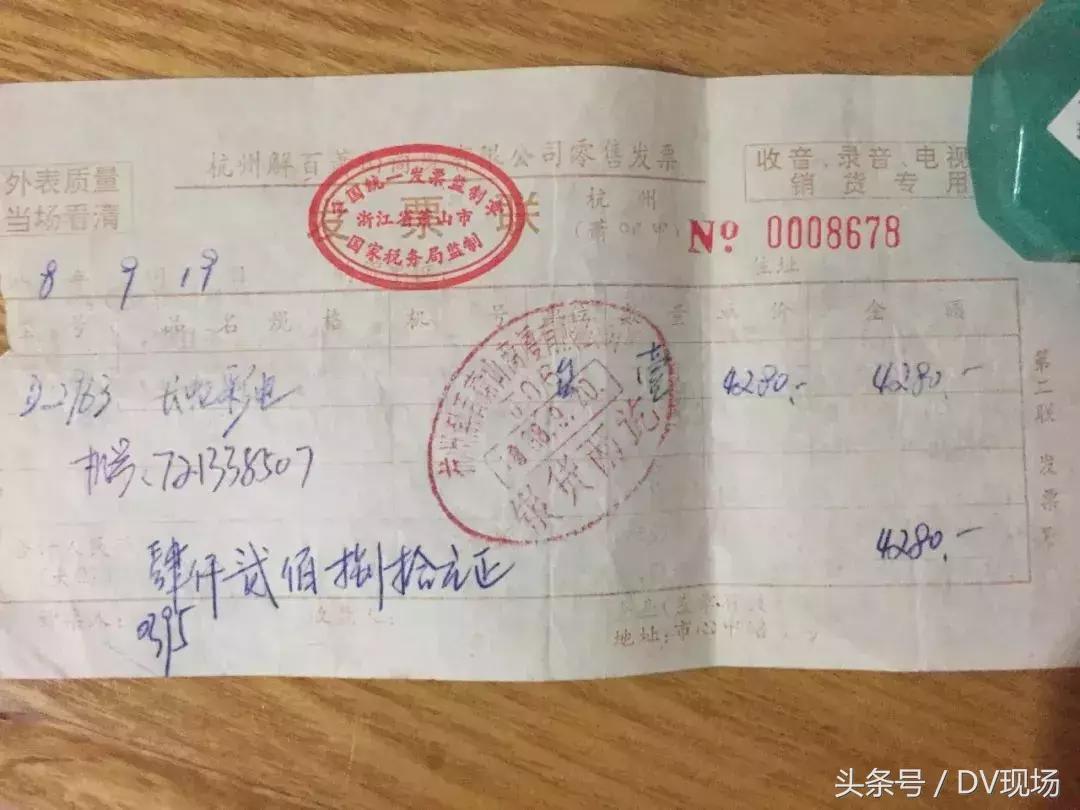 杭州解百萧山商 有限公司零售发票
外表质量
当场看清
收音、录音、电视
销货专用
全国统一发票监制章
浙江省萧山市
国家税务局监制
发票联
杭州
№ 0008678
住址
8年9月19日
号 品名规格 机号 单位 数量 单价 金额
D2963 长虹彩电 台 壹 4280.- 4280.-
机号:721338507
银货两讫
合计人民币 4280.-
肆仟贰佰捌拾元正
0395
地址:市心中路
第二联 发票
头条号 / DV现场